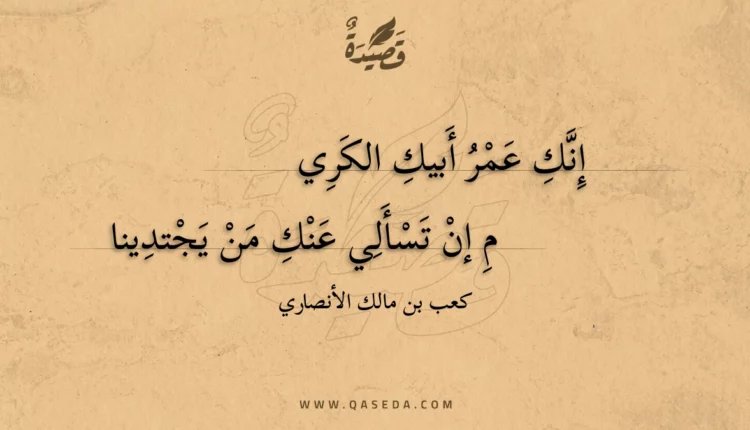 قَصِيدَةٌ
إِنَّكِ عَمْرُ أَبيكِ الكَرِي
مِ إنْ تَسْأَلِي عَنْكِ مَنْ يَجْتدِينا
كعب بن مالك الأنصاري
WWW.QASEDA.COM